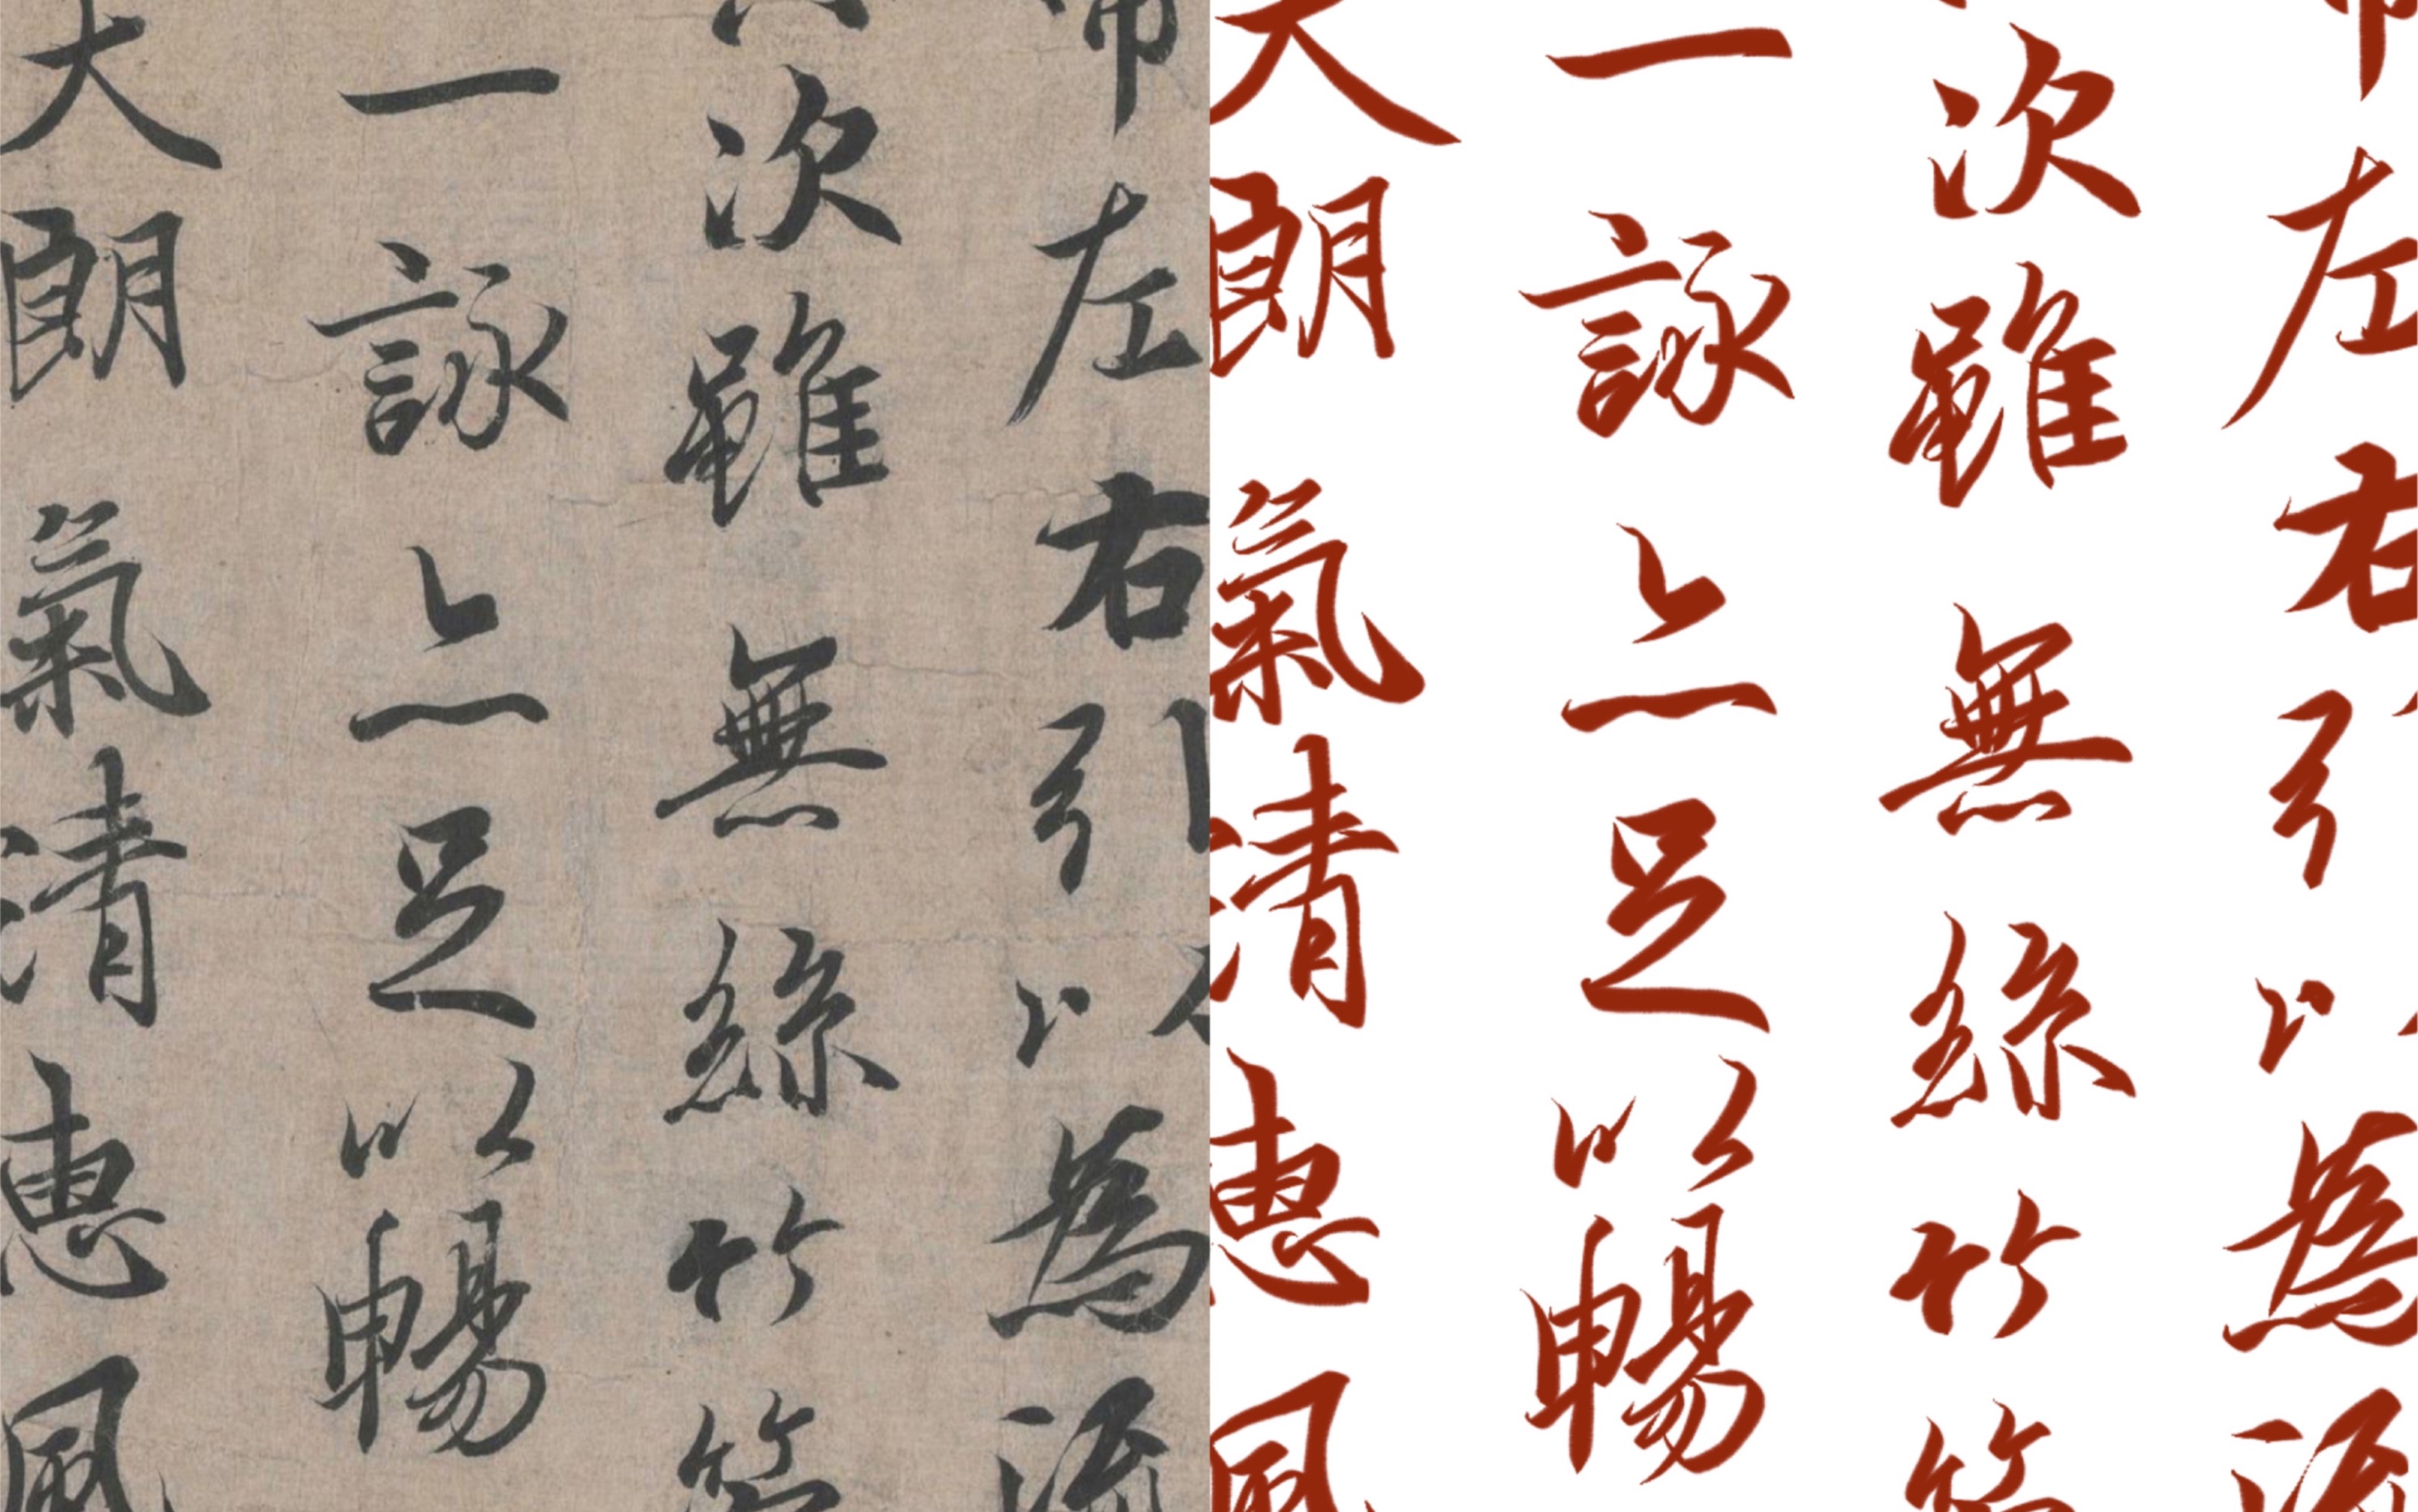 左右引以為流
次雖無絲竹管
一詠亦足以暢
天朗氣清惠風
左右引以為流
次雖無絲竹管
一詠亦足以暢
天朗氣清惠風